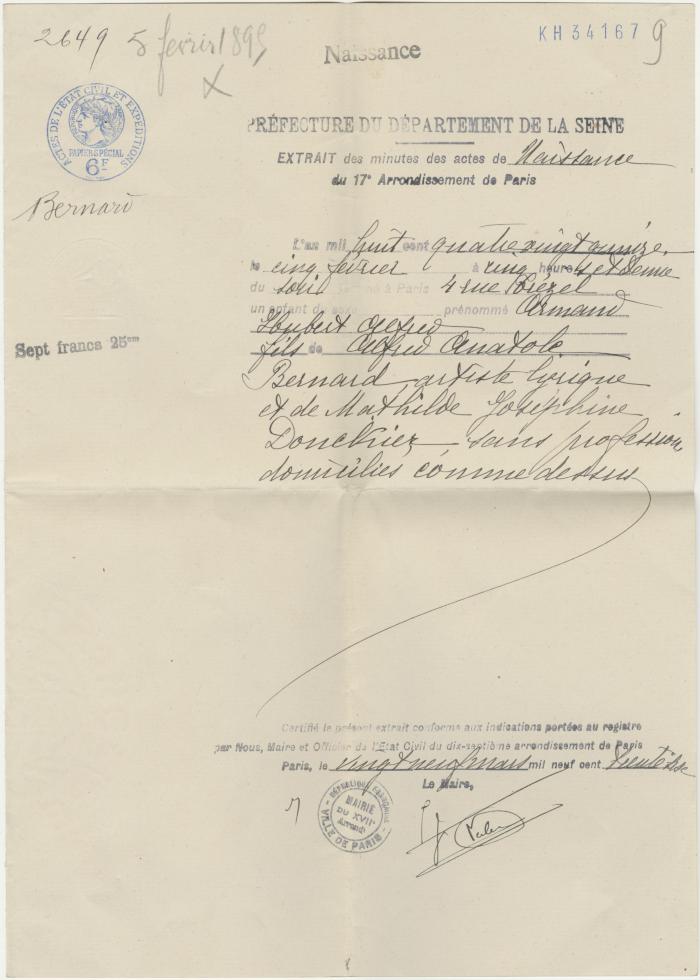 2649
5 février 1895
KH 34167
9
Naissance
X
ACTES DE L'ÉTAT CIVIL ET EXPÉDITIONS
PAPIER SPÉCIAL
6F
PRÉFECTURE DU DÉPARTEMENT DE LA SEINE
EXTRAIT des minutes des actes de Naissance
du 17e Arrondissement de Paris
Bernard
L'an mil huit cent quatre vingt quinze
le cinq février à cinq heures et demie
du soir né à Paris 4 rue Biézel
un enfant du sexe prénommé Armand
Hubert Alfred
Sept francs 25cm
fils de Alfred Anatole
Bernard artiste lyrique
et de Mathilde Joséphine
Donckier sans profession
domiciliés comme dessus
Certifié le présent extrait conforme aux indications portées au registre
par Nous, Maire et Officier de l'Etat Civil du dix-septième arrondissement de Paris
Paris, le vingt neuf mars mil neuf cent trente
Le Maire,
RÉPUBLIQUE FRANÇAISE
MAIRIE
DU XVIIe
Arrondt
VILLE DE PARIS